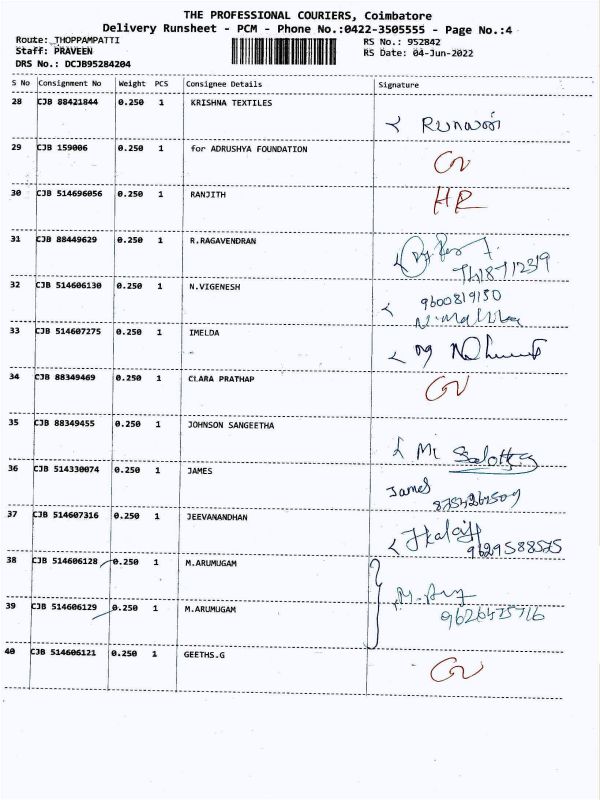 THE PROFESSIONAL COURIERS, Coimbatore
Delivery Runsheet - PCM - Phone No.:0422-3505555 - Page No.:4
Route: THOPPAMPATTI
Staff: PRAVEEN
DRS No.: DCJB95284204
RS No.: 952842
RS Date: 04-Jun-2022
S No Consignment No Weight PCS Consignee Details Signature
28 CJB 88421844 0.250 1 KRISHNA TEXTILES
29 CJB 159006 0.250 1 for ADRUSHYA FOUNDATION
30 CJB 514696056 0.250 1 RANJITH
31 CJB 88449629 0.250 1 R.RAGAVENDRAN
32 CJB 514606130 0.250 1 N.VIGENESH
9600819150
33 CJB 514607275 0.250 1 IMELDA
34 CJB 88349469 0.250 1 CLARA PRATHAP
35 CJB 88349455 0.250 1 JOHNSON SANGEETHA
36 CJB 514330074 0.250 1 JAMES
James
37 CJB 514607316 0.250 1 JEEVANANDHAN
9629588575
38 CJB 514606128 0.250 1 M.ARUMUGAM
39 CJB 514606129 0.250 1 M.ARUMUGAM
40 CJB 514606121 0.250 1 GEETHS.G